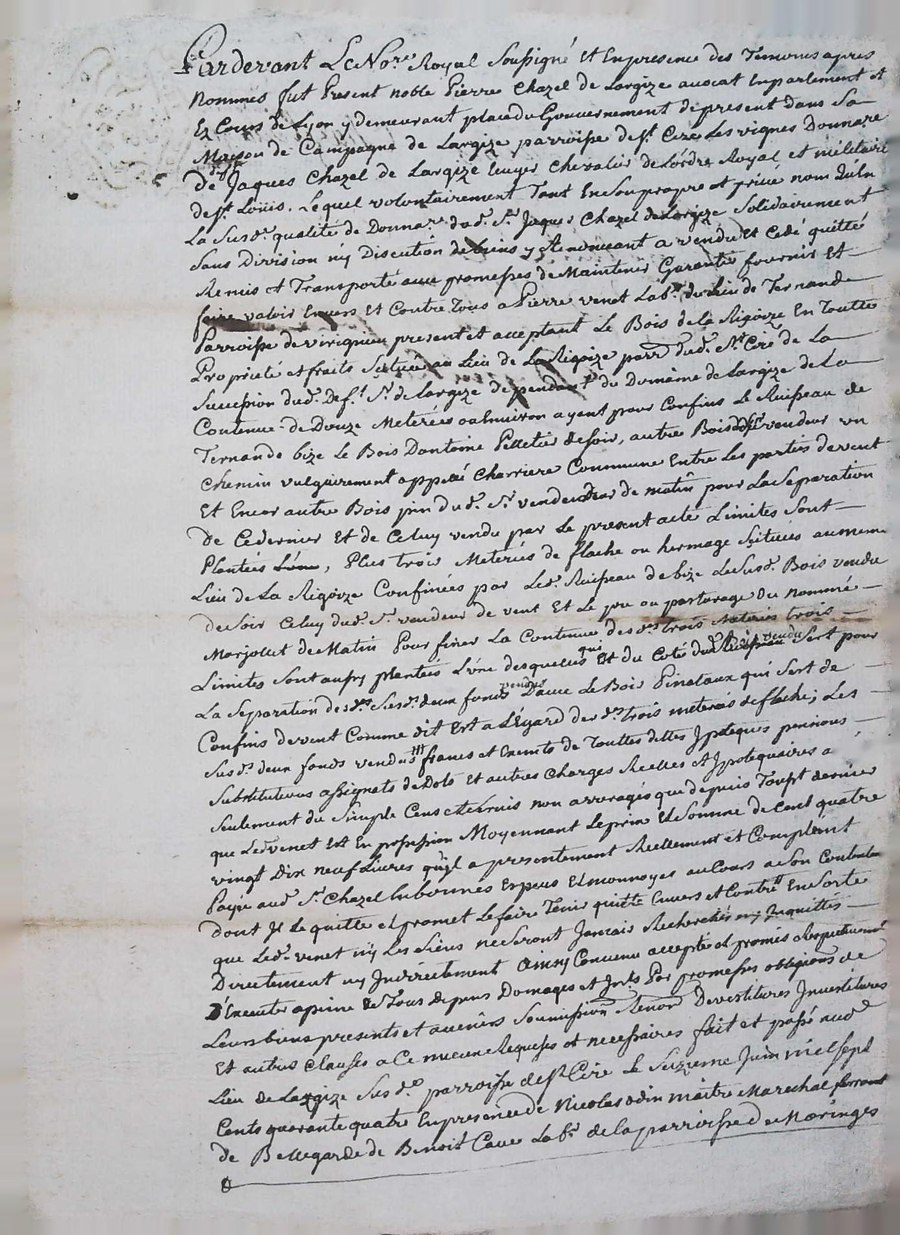 Pardevant Le No.re Royal Soussigné Et En presence des Temoins apres
Nommés fut Present noble Pierre Chazel de Largize avocat En parlement et
Ez Cours de Lyon y demeurant place du Gouvernement de present dans Sa
Maison de Campagne de Largize parroisse de St. Cire Les vignes Donnat.re
de Jaques Chazel de Largize Ecuyer Chevalier de L'ordre Royal et militaire
de St. Loüis. Lequel volontairement Tant En Son propre et privé nom qu'En
La Susd. qualité de Donna.re dud. Sr. Jaques Chazel de Largize Solidairement
Sans Division ny Discution de biens y Renonceant a vendu Et Cedé quitté
Remis et Transporté avec promesses de Maintenir Garantir fournir Et
faire valoir Envers Et Contre Tous a Pierre venet Lab.r du Lieu de Fernande
Parroisse de virigneu present et acceptant Le Bois de la Rigoize En Toutte
Proprieté et fruits Scitué au Lieu de La Rigoize parr. dud. St. Cire de La
Succession dud. Def.t Sr. de Largize dependant du Domaine de Largize de La
Contenue de Douze Meterées ou Environ ayant pour Confins Le Ruisseau de
Fernande bize Le Bois D'antoine Pelletier de Soir, autre Bois dud. Sr vendeur un
Chemin vulgairement appelé Charriere Commune Entre Les parties de vent
Et Encor autre Bois pin dud. Sr. vendeur de matin pour La Separation
De Ce dernier Et de Celuy vendu par Le present acte Limites Sont
Plantées, Plus trois Meterées de flache ou hermage Scituées au meme
Lieu de La Rigoize Confinées par Led. Ruisseau de bize Le Susd. Bois vendu
de Soir Celuy dud. Sr. vendeur de vent Et Le pré ou pasturage du nommé
Marjollet de Matin Pour finer La Contenue des d. trois Meterées trois
Limites Sont aussy plantées L'une desquelles qui Est du Coté du Sert pour
La Separation des d. Susd. deux fonds vendus D'avec Le Bois Pinataux qui Sert de
Confins de vent Comme dit Est a L'Egard des d. trois meterées de flache; Les
Susd. deux fonds vendus francs et Exempts de Touttes dettes Ypoteques pensions
Substitutions assignats de Dots Et autres Charges Reelles Et Ypotequaires a
Seulement du Simple Cens et Servis non arreragés que depuis Toust. dernier
que Led. venet Est En possession Moyennant Le prix Et Somme de Cent quatre
vingt Dix neuf Livres qu'il a presentement Reellement et Comptant
Payée aud. Sr. Chazel En bonnes Especes Et monnoyes au Cours a Son Contentem.
dont Il Le quitte et promet Le faire Tenir quitte Envers et Contre t. En Sorte
que Led. venet ny Les Siens ne Seront Jamais Recherchés ny Inquiettés
Directement ny Indirectement Ainsy Convenu accepté et promis Respectivement
D'Executer a peine de Tous depens Domages et Ints. Par promesses obligaõns de
Leurs biens presents et avenirs Soumissions Renonõns Devestitures Investitures
Et autres Clauses a Ce mieux Requises et necessaires fait et passé aud.
Lieu de Largize Susd. parroisse de St. Cire Le Suzieme Juin mil Sept
Cents quarante quatre En presence de Nicolas odin maitre Marechal ferrant
de Bellegarde de Benoit Cave Lab.r de la parroisse de Maringes